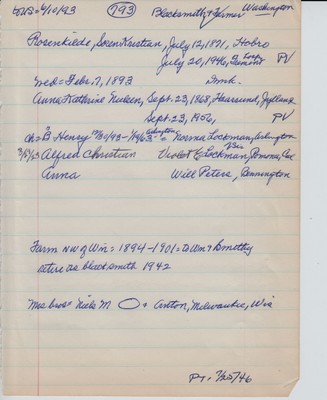 to US = 4/10/93 793 Blacksmith & Farmer Washington
Rosenkilde, Soren Kristian, July 12, 1871, Hobro
July 20, 1946, PV
wed = Febr. 7, 1893
Anna Kathrine Nielsen, Sept. 23, 1868, Havrund, Jylland
Sept. 23, 1956, PV
Arlington
ch = B Henry - = Norma Lockman, Arlington
Alfred Christian Violet Lockman, Pomona, Cal
Anna Will Peters, Bennington
Farm NW of Win = 1894 - 1901 = to Wn & Smithy
retire as blacksmith 1942
Mrs bros = Niels M + Anton, Milwaukee, Wis
PT = 7/25/46